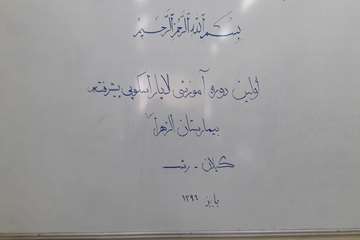 بسم الله الرحمن الرحیم
اولین دوره آموزشی لاپاراسکوپی پیشرفته
بیمارستان الزهرا
گیلان - رشت
پاییز ۱۳۹۶